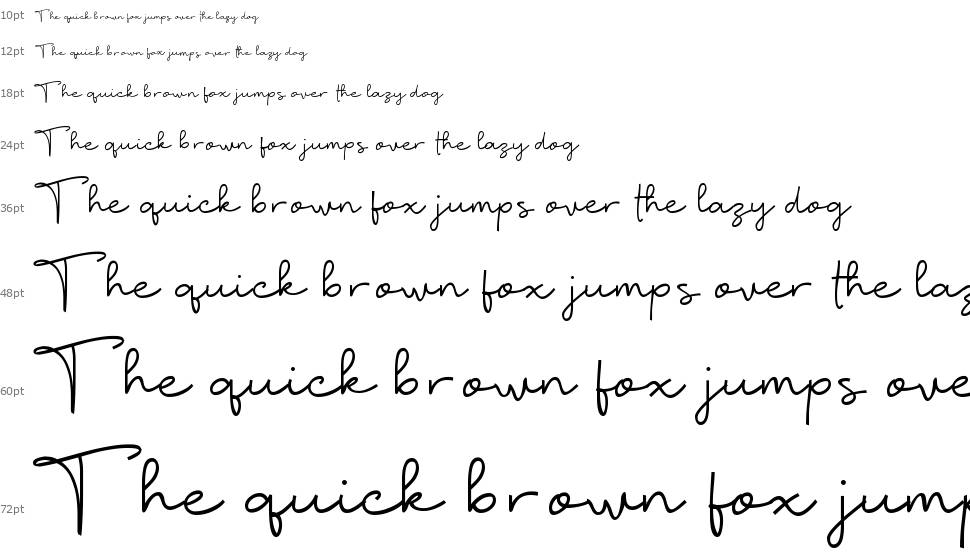 10pt The quick brown fox jumps over the lazy dog
12pt The quick brown fox jumps over the lazy dog
18pt The quick brown fox jumps over the lazy dog
24pt The quick brown fox jumps over the lazy dog
36pt The quick brown fox jumps over the lazy dog
48pt The quick brown fox jumps over the laz
60pt The quick brown fox jumps ove
72pt The quick brown fox jump